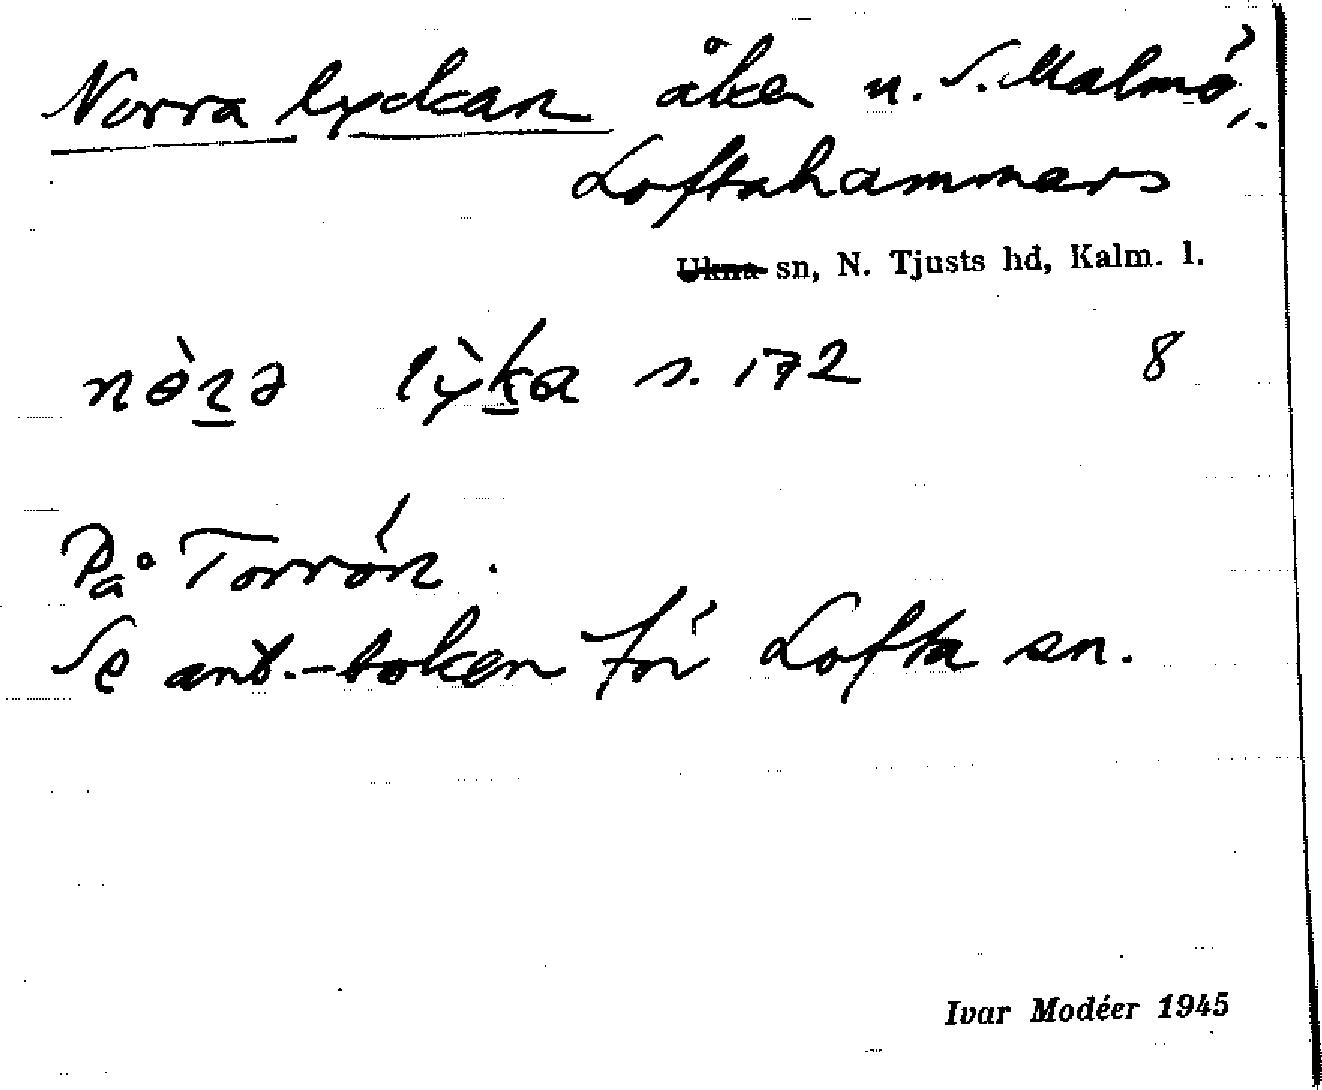 Norra lyckan åker u. S. Malmö,
Loftahammars
Ukna sn, N. Tjusts hd, Kalm. l.
s. 172 8
På Torrön.
Se ant.-boken för Lofta sn.
Ivar Modéer 1945